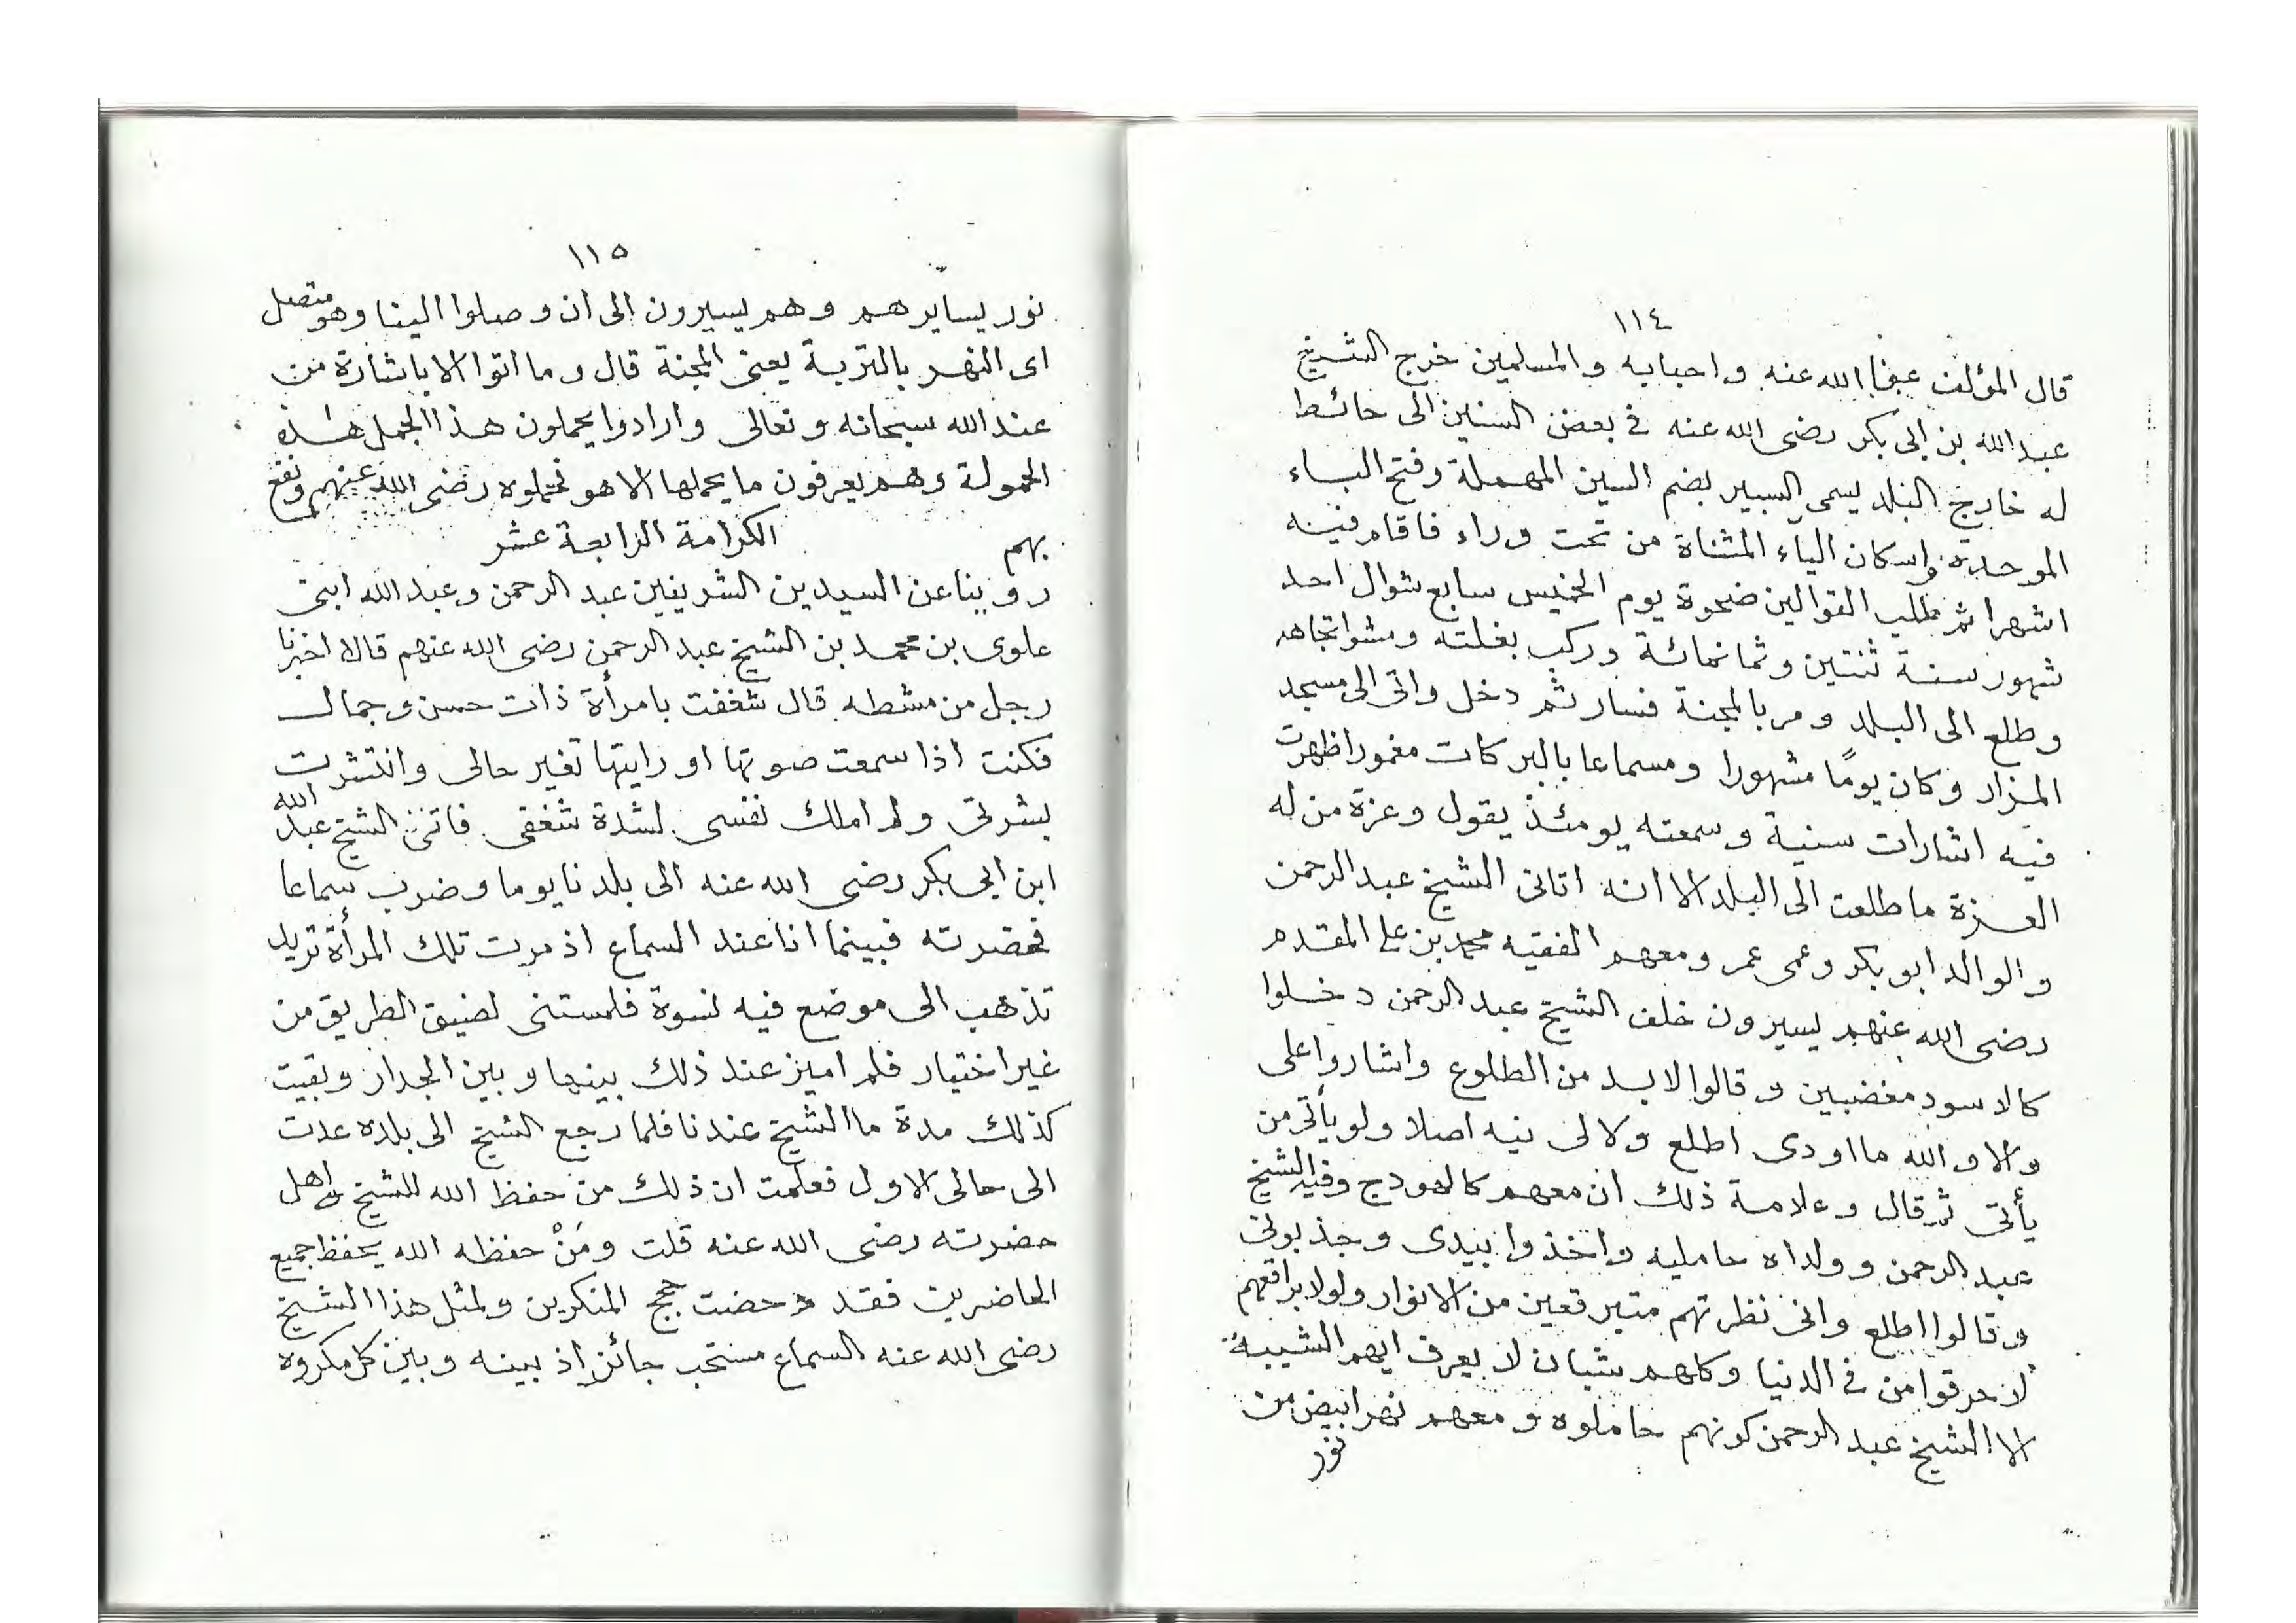 ١١٤
قال المؤلف عفا الله عنه واحبابه والمسلمين خرج الشيخ
عبد الله بن ابى بكر رضى الله عنه فى بعض السنين الى حائط
له خارج البلد يسمى السبير بضم السين المهملة وفتح الباء
الموحدة واسكان الياء المثناة من تحت وراء فاقام فيه
اشهرا ثم طلب القوالين ضحوة يوم الخميس سابع شوال احد
شهور سنة ثنتين وثمانمائة وركب بغلته ومشوا تجاهه
وطلع الى البلد ومر بالمجنة فسار ثم دخل واتى الى مسجد
المزار وكان يومًا مشهورا ومسماعا بالبركات مغمورا ظهرت
فيه اشارات سنية وسمعته يومئذ يقول وعزة من له
العزة ما طلعت الى البلد الا انه اتانى الشيخ عبد الرحمن
والوالد ابو بكر وعمى عمر ومعهم الفقيه محمد بن على المقدم
رضى الله عنهم يسيرون خلف الشيخ عبد الرحمن دخلوا
كالاسود مغضبين وقالوا لا بد من الطلوع واشاروا على
والا والله ما اودى اطلع ولا لى نيه اصلا ولو يأتى من
يأتى ثم قال وعلامة ذلك ان معهم كالهودج وفيه الشيخ
عبد الرحمن وولداه حامليه واخذوا بيدى وجذبونى
وقالوا اطلع وانى نظرتهم متبرقعين من الانوار ولولا براقعهم
لاحرقوا من فى الدنيا وكلهم شبان لا يعرف ايهم الشيبة
الا الشيخ عبد الرحمن كونهم حاملوه ومعهم نهر ابيض من
نور
١١٥
نور يسايرهم وهم يسيرون الى ان وصلوا الينا وهو متصل
اى النهر بالتربة يعنى المجنة قال وما اتوا الا باشارة من
عند الله سبحانه وتعالى وارادوا يحملون هذا الجمل هذه
الحمولة وهم يعرفون ما يحملها الا هو فحملوه رضى الله عنهم ونفع
بهم الكرامة الرابعة عشر
روينا عن السيدين الشريفين عبد الرحمن وعبد الله ابنى
علوى بن محمد بن الشيخ عبد الرحمن رضى الله عنهم قالا اخبرنا
رجل من مشطه قال شغفت بامرأة ذات حسن وجمال
فكنت اذا سمعت صوتها او رايتها تغير حالى وانتشرت
بشرتى ولم املك نفسى لشدة شغفى فاتى الشيخ عبد الله
ابن ابى بكر رضى الله عنه الى بلدنا يوما وضرب سماعا
فحضرته فبينما انا عند السماع اذ مرت تلك المرأة تريد
تذهب الى موضع فيه نسوة فلمستنى لضيق الطريق من
غير اختيار فلم اميز عند ذلك بينها وبين الجدار وبقيت
كذلك مدة ما الشيخ عندنا فلما رجع الشيخ الى بلده عدت
الى حالى الاول فعلمت ان ذلك من حفظ الله للشيخ واهل
حضرته رضى الله عنه قلت ومَنْ حفظه الله يحفظ جميع
الحاضرين فقد دحضت حجج المنكرين ولمثل هذا الشيخ
رضى الله عنه السماع مستحب جائز اذ بينه وبين كل مكروه